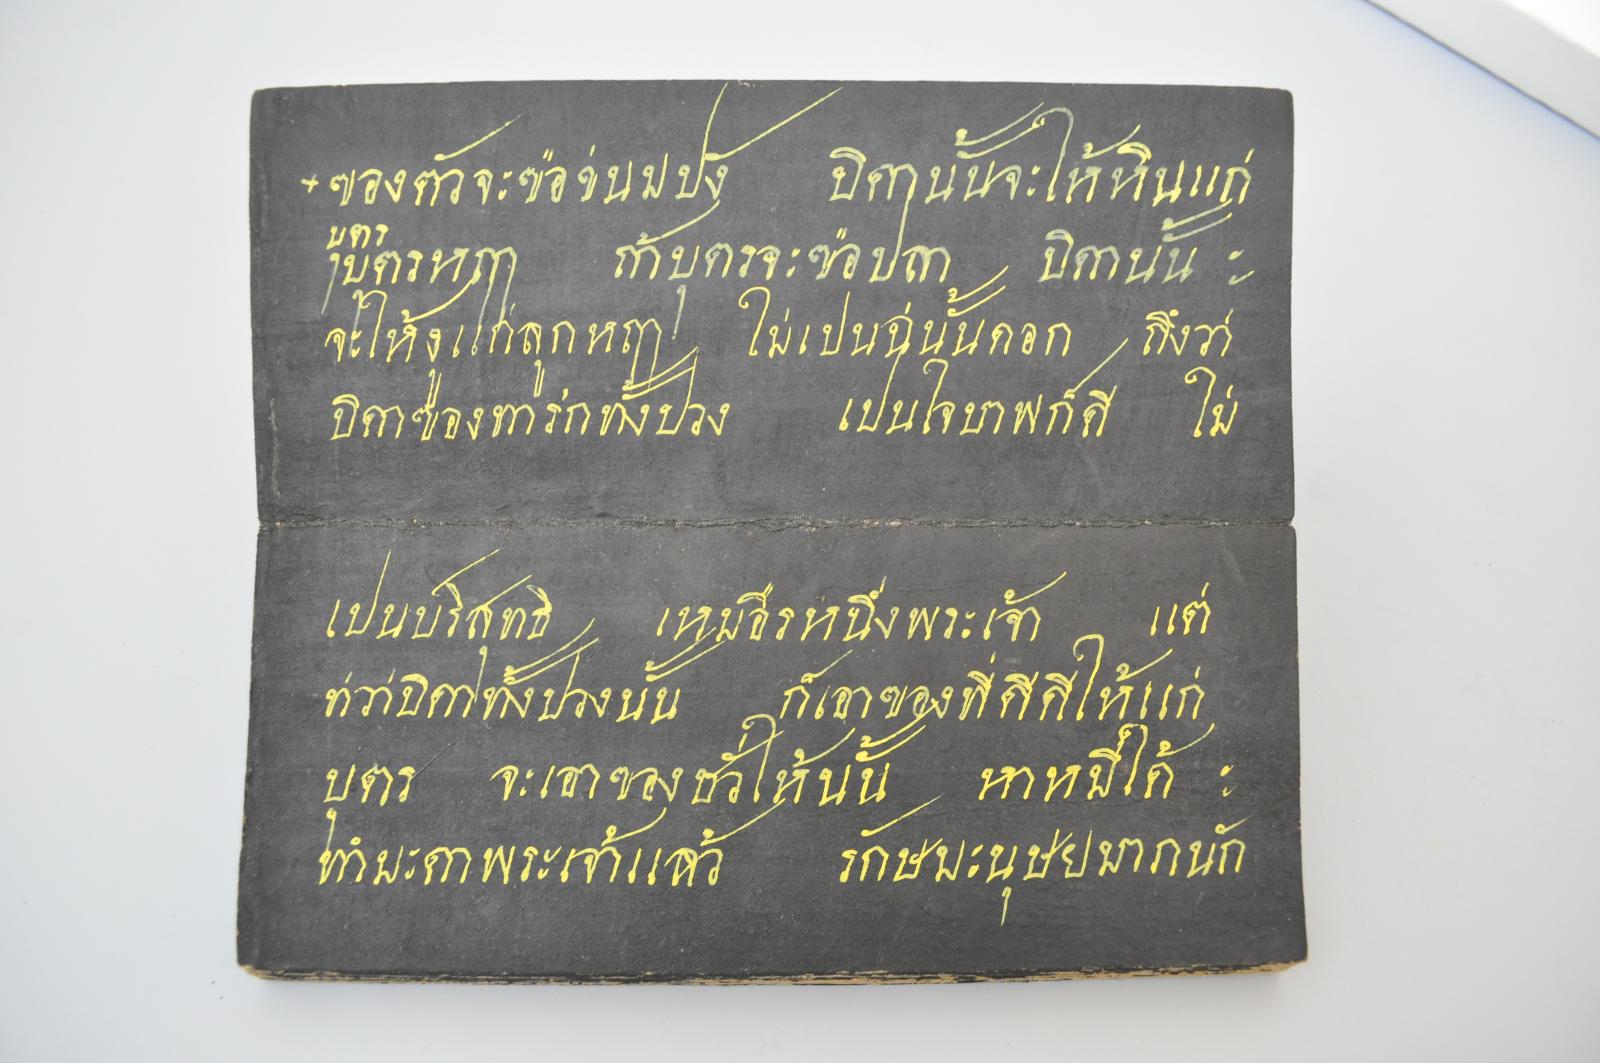 + ของตัวจะขอขนมปัง บิดานั้นจะให้หินแก่
บุตร
บุตรหฤๅ ถ้าบุตรจะขอปลา บิดานั้น ะ
จะให้งูแก่ลูกหฤๅ ไม่เปนฉนั้นดอก ถึงว่า
บิดาของทารกทั้งปวง เปนใจบาพก็ดี ไม่
เปนบริสุทธิ เหมือรหนึ่งพระเจ้า แต่
ท่วาบิดาทั้งปวงนั้น ก็เอาของที่ดีดีให้แก่
บุตร จะเอาของชั่วให้นั้น หาหมีได้ ะ
ทำมะดาพระเจ้าแล้ว รักษมะนุษยมากนัก